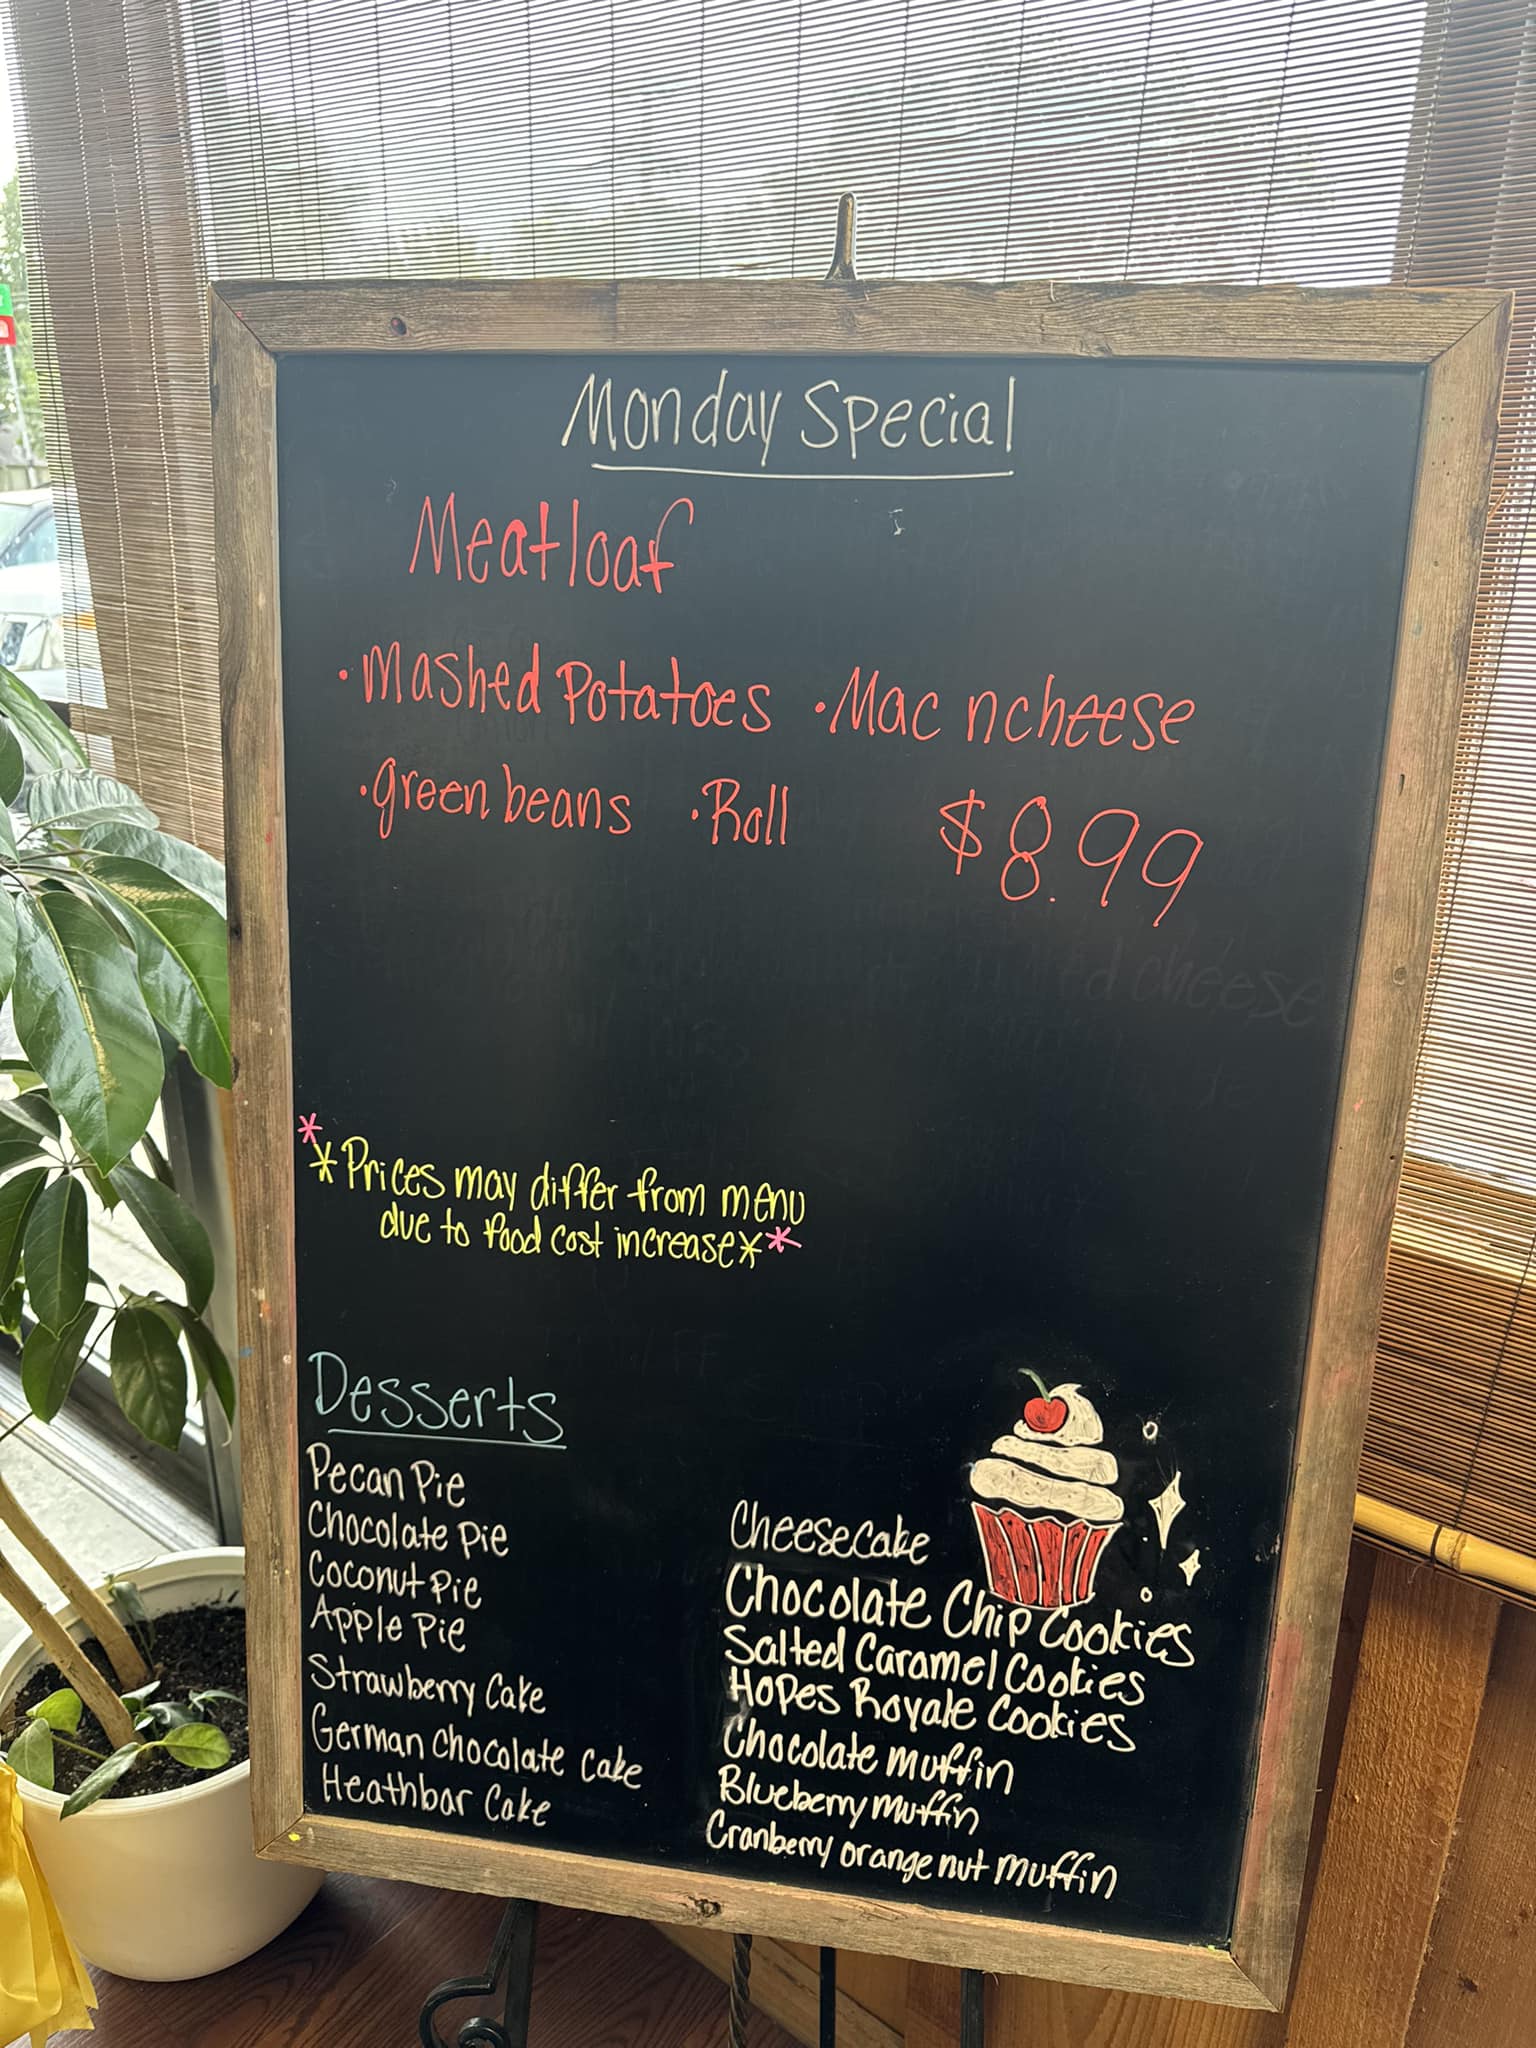 Monday Special
Meatloaf
• Mashed Potatoes • Mac n cheese
• green beans • Roll $8.99
* *Prices may differ from menu
due to food cost increase* *
Desserts
Pecan Pie
Chocolate Pie
Coconut Pie
Apple Pie
Strawberry Cake
German Chocolate Cake
Heathbar Cake
Cheesecake
Chocolate Chip Cookies
Salted Caramel Cookies
Hopes Royale Cookies
Chocolate muffin
Blueberry muffin
Cranberry orange nut muffin